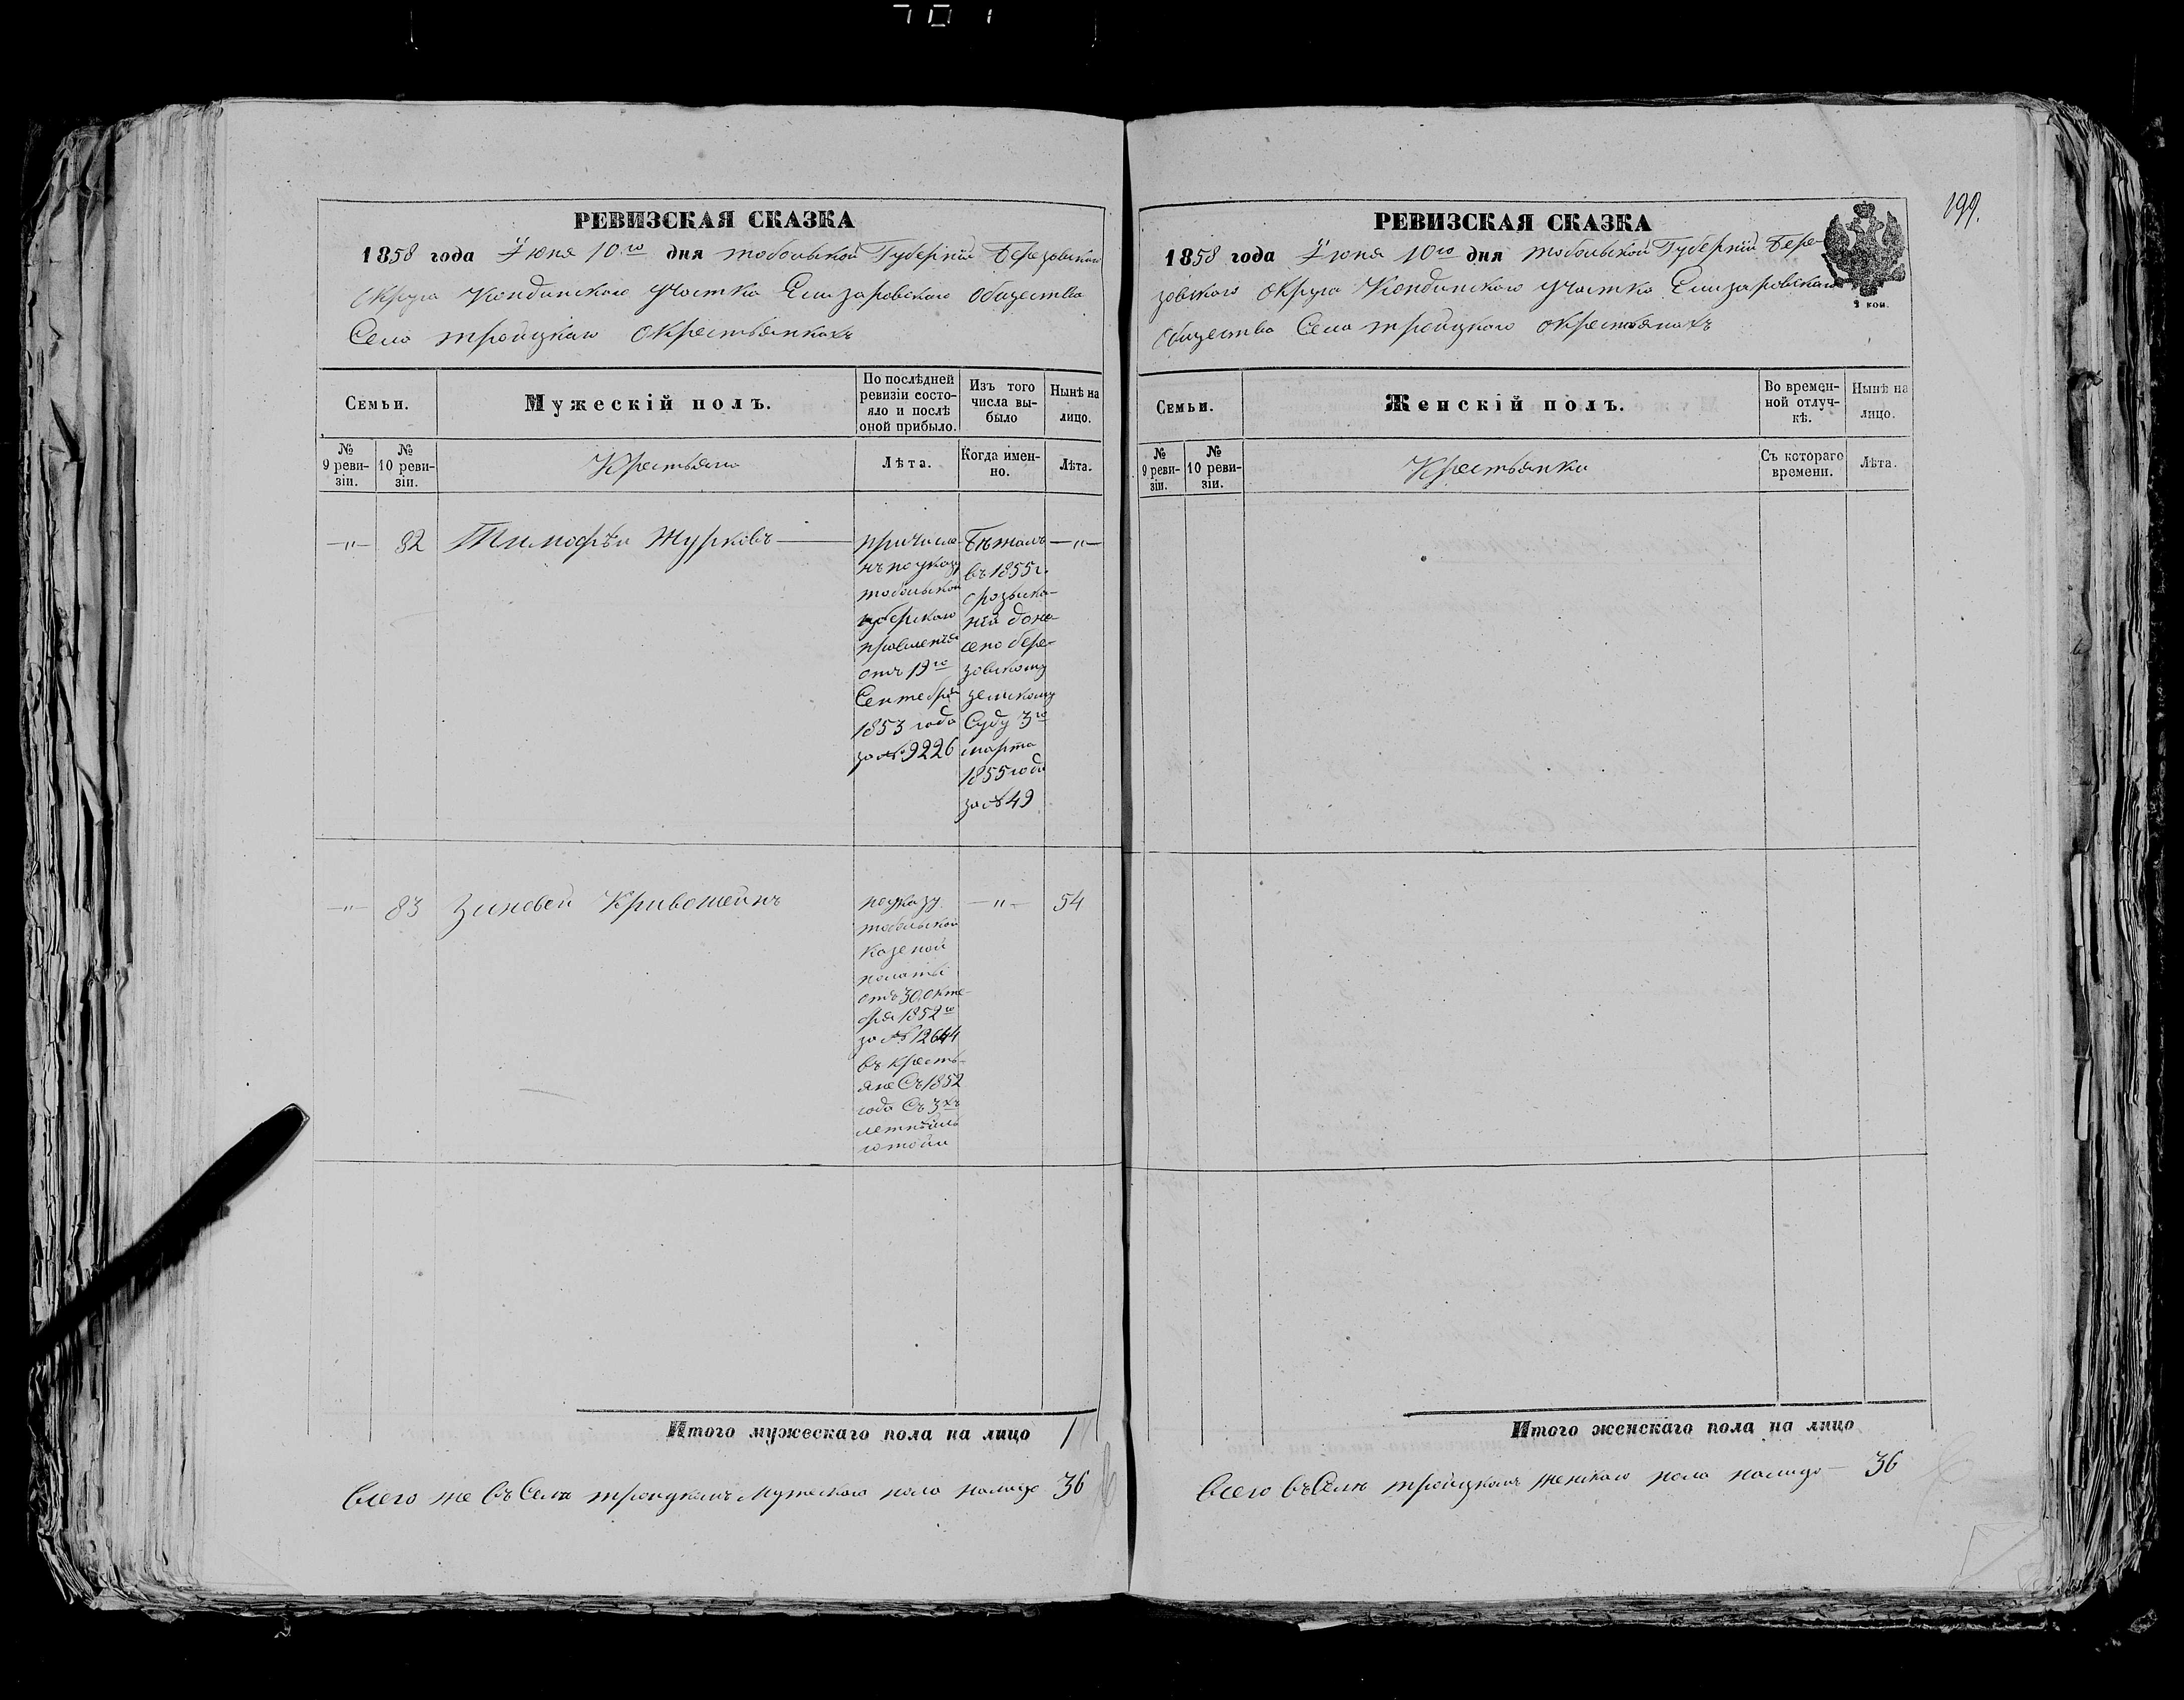 701
РЕВИЗСКАЯ СКАЗКА
1858 года Июня 10го дня тобольской Губерніи Березовскаго
округа Кондинскаго участка Елизаровскаго общества
Села троицкаго окрестьянахъ
Семьи.
Мужескій полъ.
По послѣдней
ревизіи состо-
яло и послѣ
оной прибыло.
Изъ того
числа вы-
было
Нынѣ на
лицо.
№
9 реви-
зіи.
№
10 реви-
зіи.
Крестьяна
Лѣта.
Когда имен-
но.
Лѣта.
—"— 82 Тимофѣй Журковъ
причисле-
нъ поуказу
тобольскаго
губерскаго
правленія
отъ 19го
Сентебря
1853 года
за № 9226
Бѣжалъ
въ 1855 г.
орозыска-
ніи доне-
сено бере-
зовскому
земскому
Суду 3го
марта
1855 года
за № 49
—"—
—"— 83 Зиновей Кривошеинъ
поуказу
тобольской
казеной
палаты
отъ 30 окте-
бря 1852го
за № 12644
въ кресть-
яне Съ 1852
года Съ 3хъ
летнеюль
готойи
—"—
54
Итого мужескаго пола на лицо 1
Всего же въ Селѣ троицкомъ Мужескаго пола налицо 36
199.
РЕВИЗСКАЯ СКАЗКА
1858 года Июня 10го дня тобольской Губерніи Бере-
зовскаго округа Кондинскаго участка Елизаровскаго
общества Села тройцкаго окрестьянахъ
2 коп.
Семьи.
Женскій полъ.
Во времен-
ной отлуч-
кѣ.
Нынѣ на
лицо.
№
9 реви-
зіи.
№
10 реви-
зіи.
Крестьянки
Съ котораго
времени.
Лѣта.
Итого женскаго пола на лицо
Всего въ Селѣ тройцкомъ женскаго пола налицо — 36